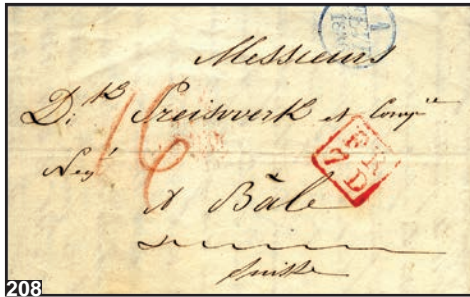 Messieurs
Preiswerk et Comp^ie
16
F R
D
A Bâle
Suisse
208